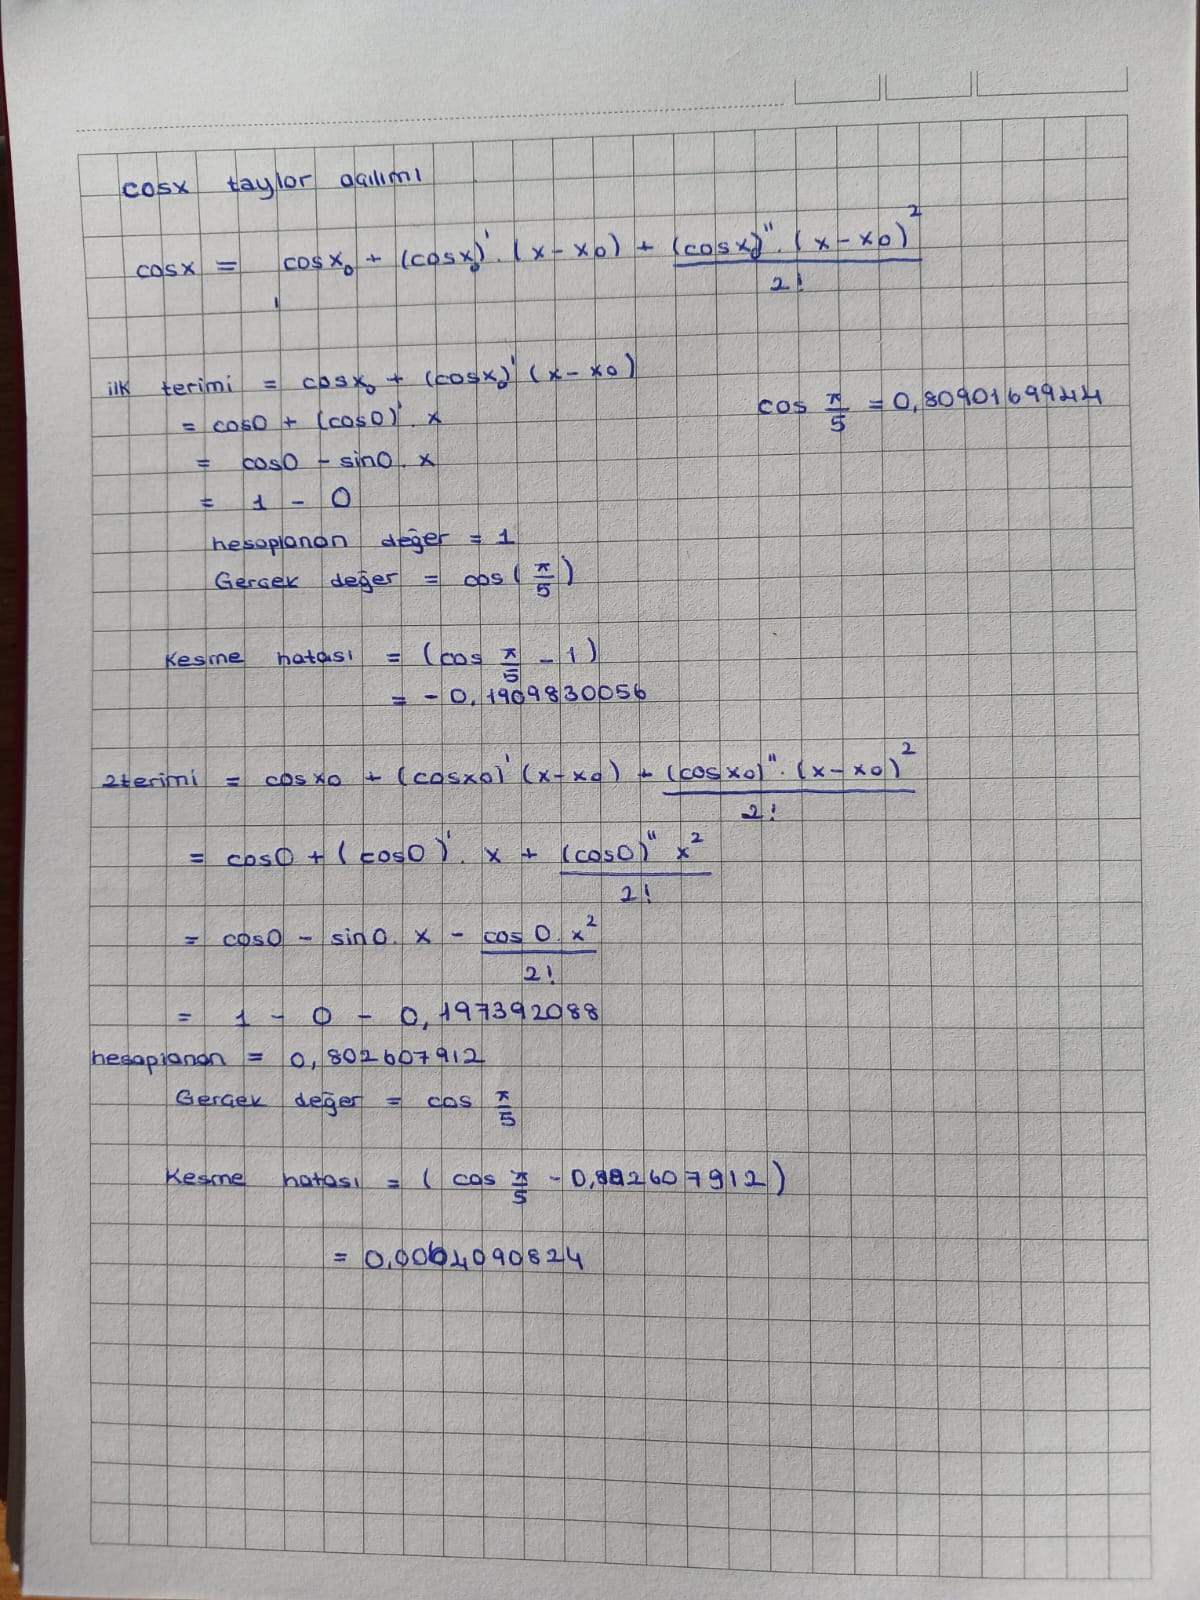 cosx taylor açılımı
cosx = cosx₀ + (cosx₀)'.(x-x0) + (cosx₀)''.(x-x0)² / 2!
ilk terimi = cosx₀ + (cosx₀)'(x-x0)
cos π/5 = 0,8090169944
= cos0 + (cos0)'.x
= cos0 - sin0.x
= 1 - 0
hesaplanan değer = 1
Gerçek değer = cos(π/5)
Kesme hatası = (cos π/5 - 1)
= -0,1909830056
2terimi = cosx0 + (cosx0)'(x-x0) + (cosx0)''.(x-x0)² / 2!
= cos0 + (cos0)'.x + (cos0)'' x² / 2!
= cos0 - sin0.x - cos0.x² / 2!
= 1 - 0 - 0,197392088
hesaplanan = 0,802607912
Gerçek değer = cos π/5
Kesme hatası = (cos π/5 - 0,802607912)
= 0,0064090824